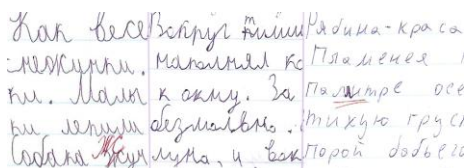 Как весе
снежинки.
ки. Малы
ки лепили
Собака Жу
Вокруг тиши
наполнял ко
к окну. За
безмолвно.
луна, и вок
Рябина-краса
Пламенея
Палитре осе
тихую грус
порой бабьего